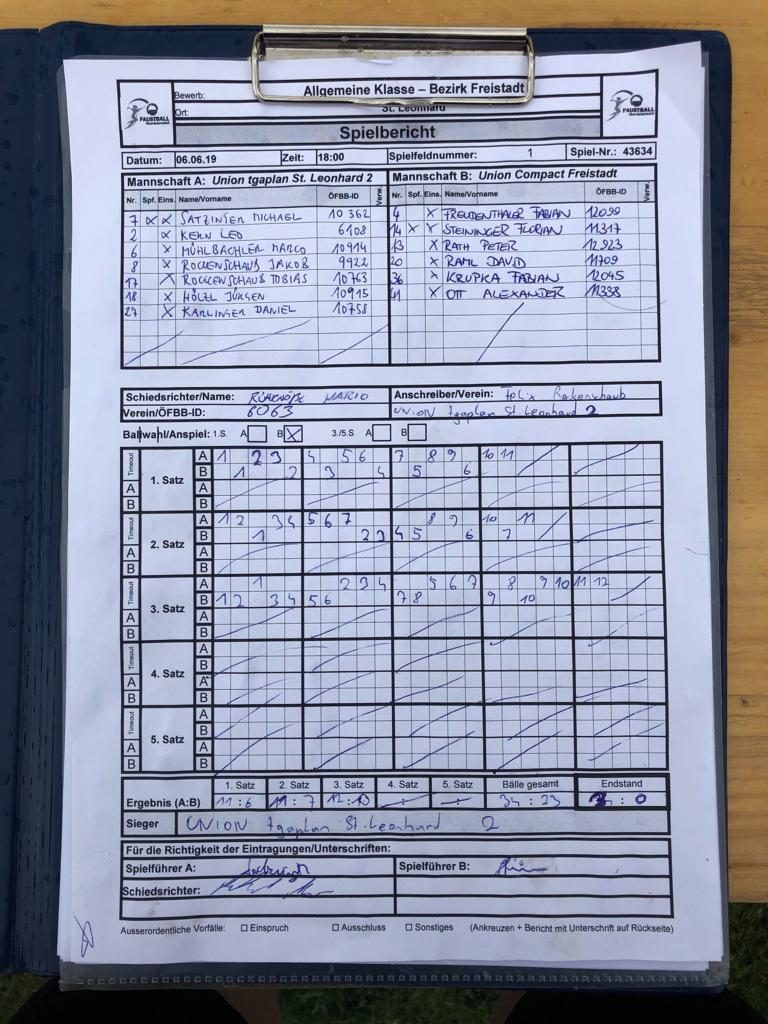 Bewerb: Allgemeine Klasse – Bezirk Freistadt
Ort: St. Leonhard
FAUSTBALL
FAUSTBALL
Spielbericht
Datum: 06.06.19 Zeit: 18:00 Spielfeldnummer: 1 Spiel-Nr.: 43634
Mannschaft A: Union tgaplan St. Leonhard 2 Mannschaft B: Union Compact Freistadt
Nr. Spf. Eins. Name/Vorname ÖFBB-ID Verw. Nr. Spf. Eins. Name/Vorname ÖFBB-ID Verw.
7 x x SATZINGER MICHAEL 10362 4 x FREUDENTHALER FABIAN 12099
2 x KERN LEO 6108 14 x x STEININGER FLORIAN 11317
6 x MÜHLBACHLER MARCO 10914 13 x RATH PETER 12923
8 x ROCKENSCHAUB JAKOB 9922 20 x RAML DAVID 11709
17 x ROCKENSCHAUB TOBIAS 10763 36 x KRUPKA FABIAN 12045
18 x HÖLZL JÜRGEN 10915 41 x OTT ALEXANDER 11338
27 x KARLINGER DANIEL 10758
Schiedsrichter/Name: MARIO Anschreiber/Verein: Felix
Verein/ÖFBB-ID: 6063 UNION tgaplan St. Leonhard 2
Ballwahl/Anspiel: 1.S. A B X 3./5.S A B
Timeout 1. Satz
A 1 2 3 4 5 6 7 8 9 10 11
B 1 2 3 4 5 6
A
B
Timeout 2. Satz
A 1 2 3 4 5 6 7 8 9 10 11
B 1 2 3 4 5 6 7
A
B
Timeout 3. Satz
A 1 2 3 4 5 6 7 8 9 10 11 12
B 1 2 3 4 5 6 7 8 9 10
A
B
Timeout 4. Satz
A
B
A
B
Timeout 5. Satz
A
B
A
B
1. Satz 2. Satz 3. Satz 4. Satz 5. Satz Bälle gesamt Endstand
Ergebnis (A:B) 11:6 11:7 12:10 : : 34:23 3:0
Sieger UNION tgaplan St. Leonhard 2
Für die Richtigkeit der Eintragungen/Unterschriften:
Spielführer A: Spielführer B:
Schiedsrichter:
Ausserordentliche Vorfälle: Einspruch Ausschluss Sonstiges (Ankreuzen + Bericht mit Unterschrift auf Rückseite)